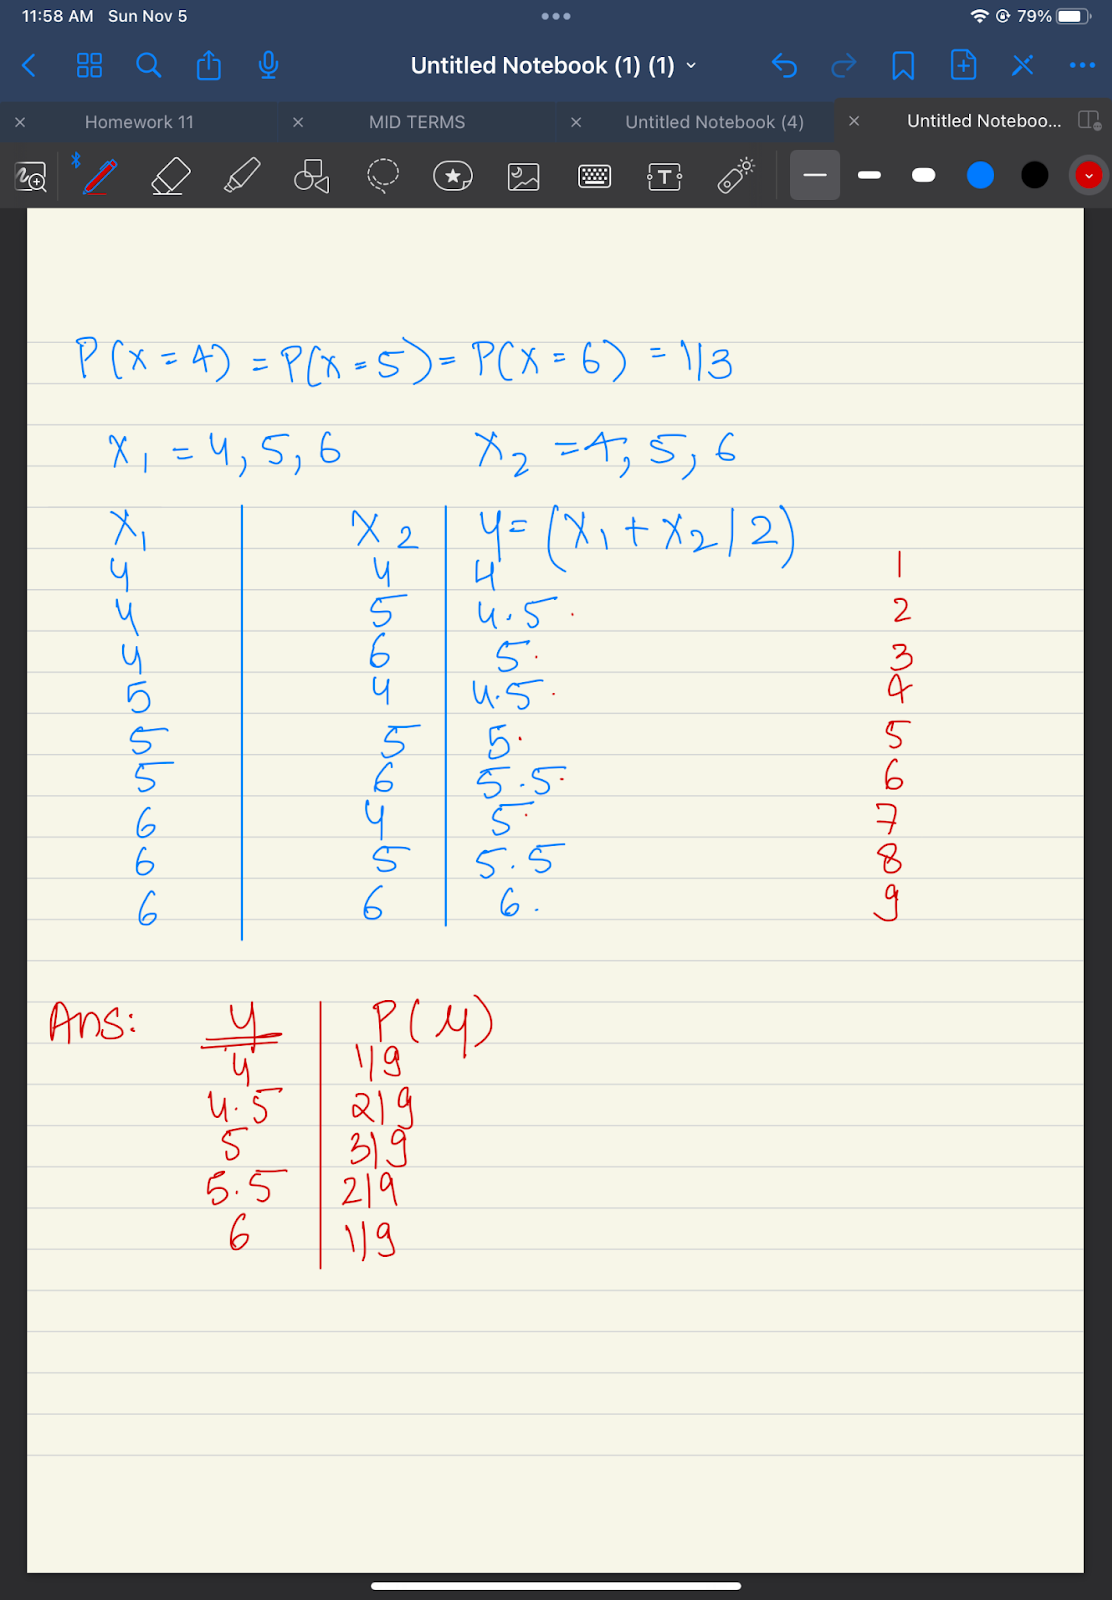 11:58 AM Sun Nov 5 79%
Untitled Notebook (1) (1)
Homework 11 MID TERMS Untitled Notebook (4) Untitled Noteboo...
P(x = 4) = P(x = 5) = P(x = 6) = 1/3
x₁ = 4, 5, 6 x₂ = 4, 5, 6
x₁ x₂ y = (x₁ + x₂ / 2)
4 4 4 1
4 5 4.5 2
4 6 5 3
5 4 4.5 4
5 5 5 5
5 6 5.5 6
6 4 5 7
6 5 5.5 8
6 6 6 9
Ans: y P(y)
4 1/9
4.5 2/9
5 3/9
5.5 2/9
6 1/9